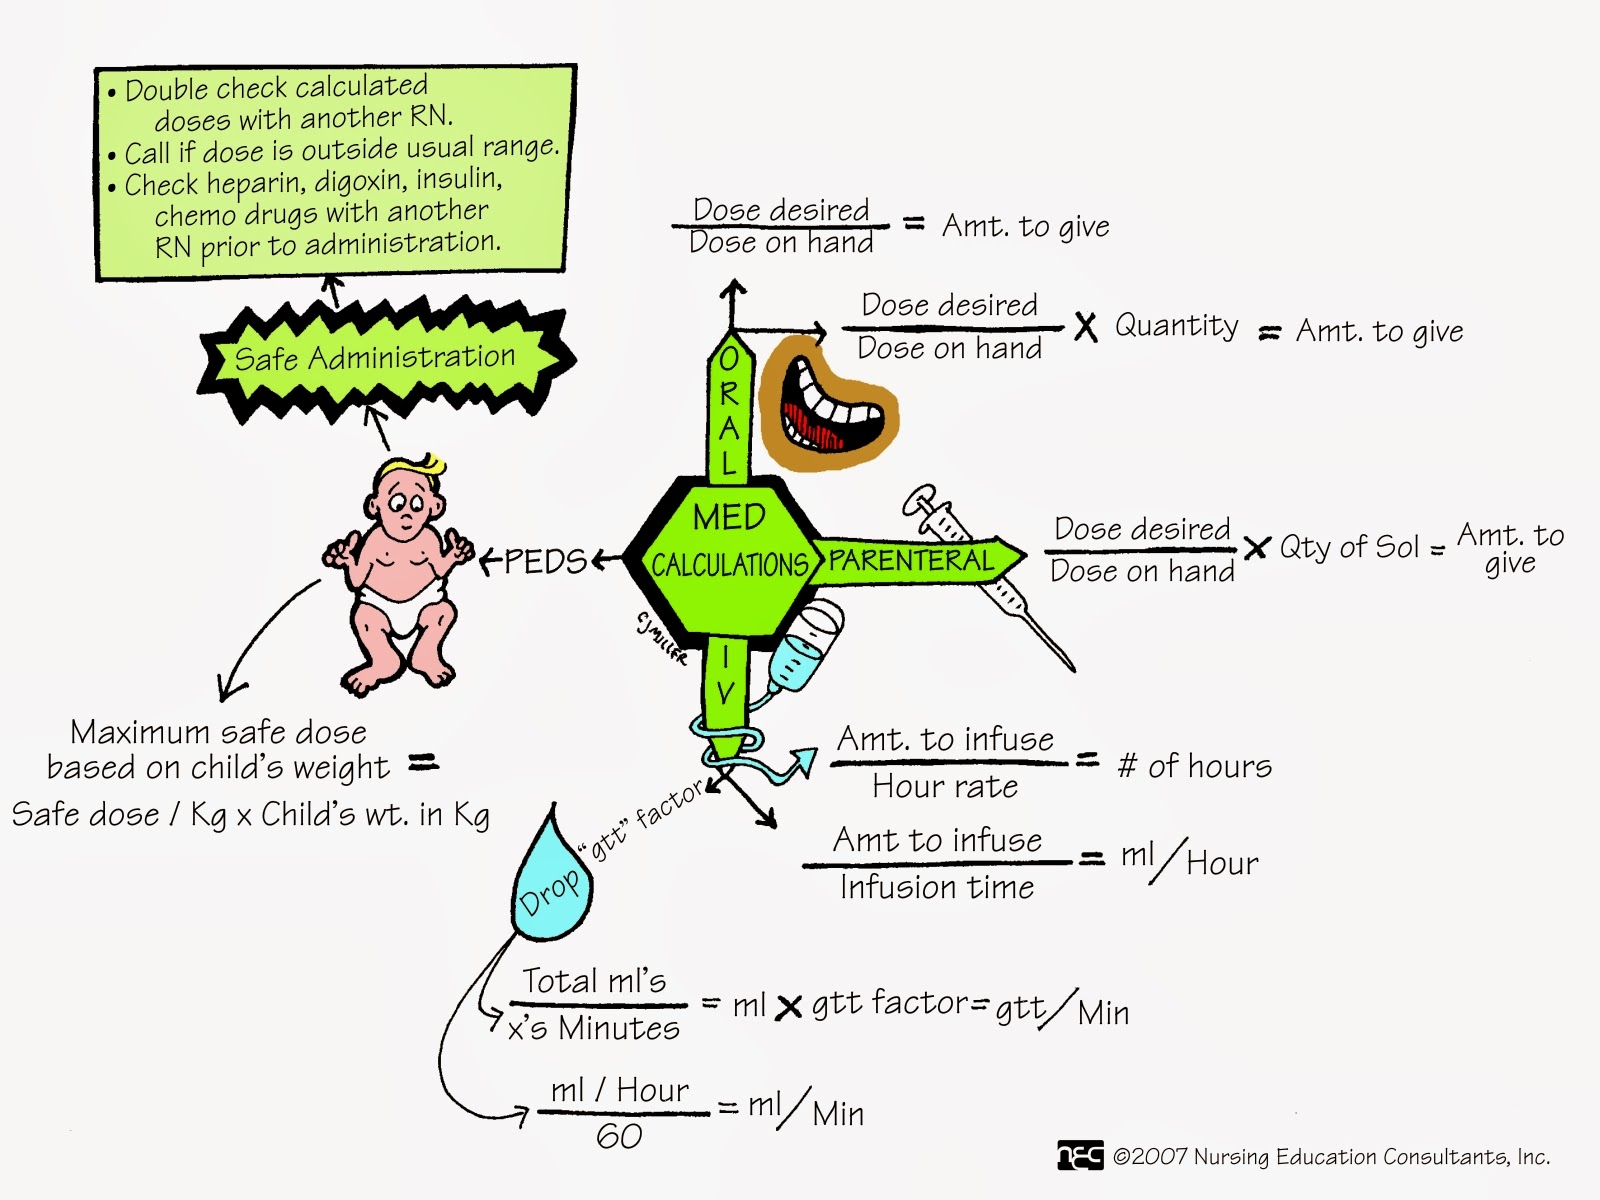 • Double check calculated
doses with another RN.
• Call if dose is outside usual range.
• Check heparin, digoxin, insulin,
chemo drugs with another
RN prior to administration.
Safe Administration
Dose desired
Dose on hand
= Amt. to give
Dose desired
Dose on hand
X Quantity = Amt. to give
ORAL
MED
CALCULATIONS
PARENTERAL
Dose desired
Dose on hand
X Qty of Sol = Amt. to
give
PEDS
CJMILLER
IV
Maximum safe dose
based on child's weight =
Safe dose / Kg x Child's wt. in Kg
Amt. to infuse
Hour rate
= # of hours
Amt to infuse
Infusion time
= ml/Hour
Drop "gtt" factor
Total ml's
x's Minutes
= ml X gtt factor = gtt/Min
ml / Hour
60
= ml/Min
nec ©2007 Nursing Education Consultants, Inc.